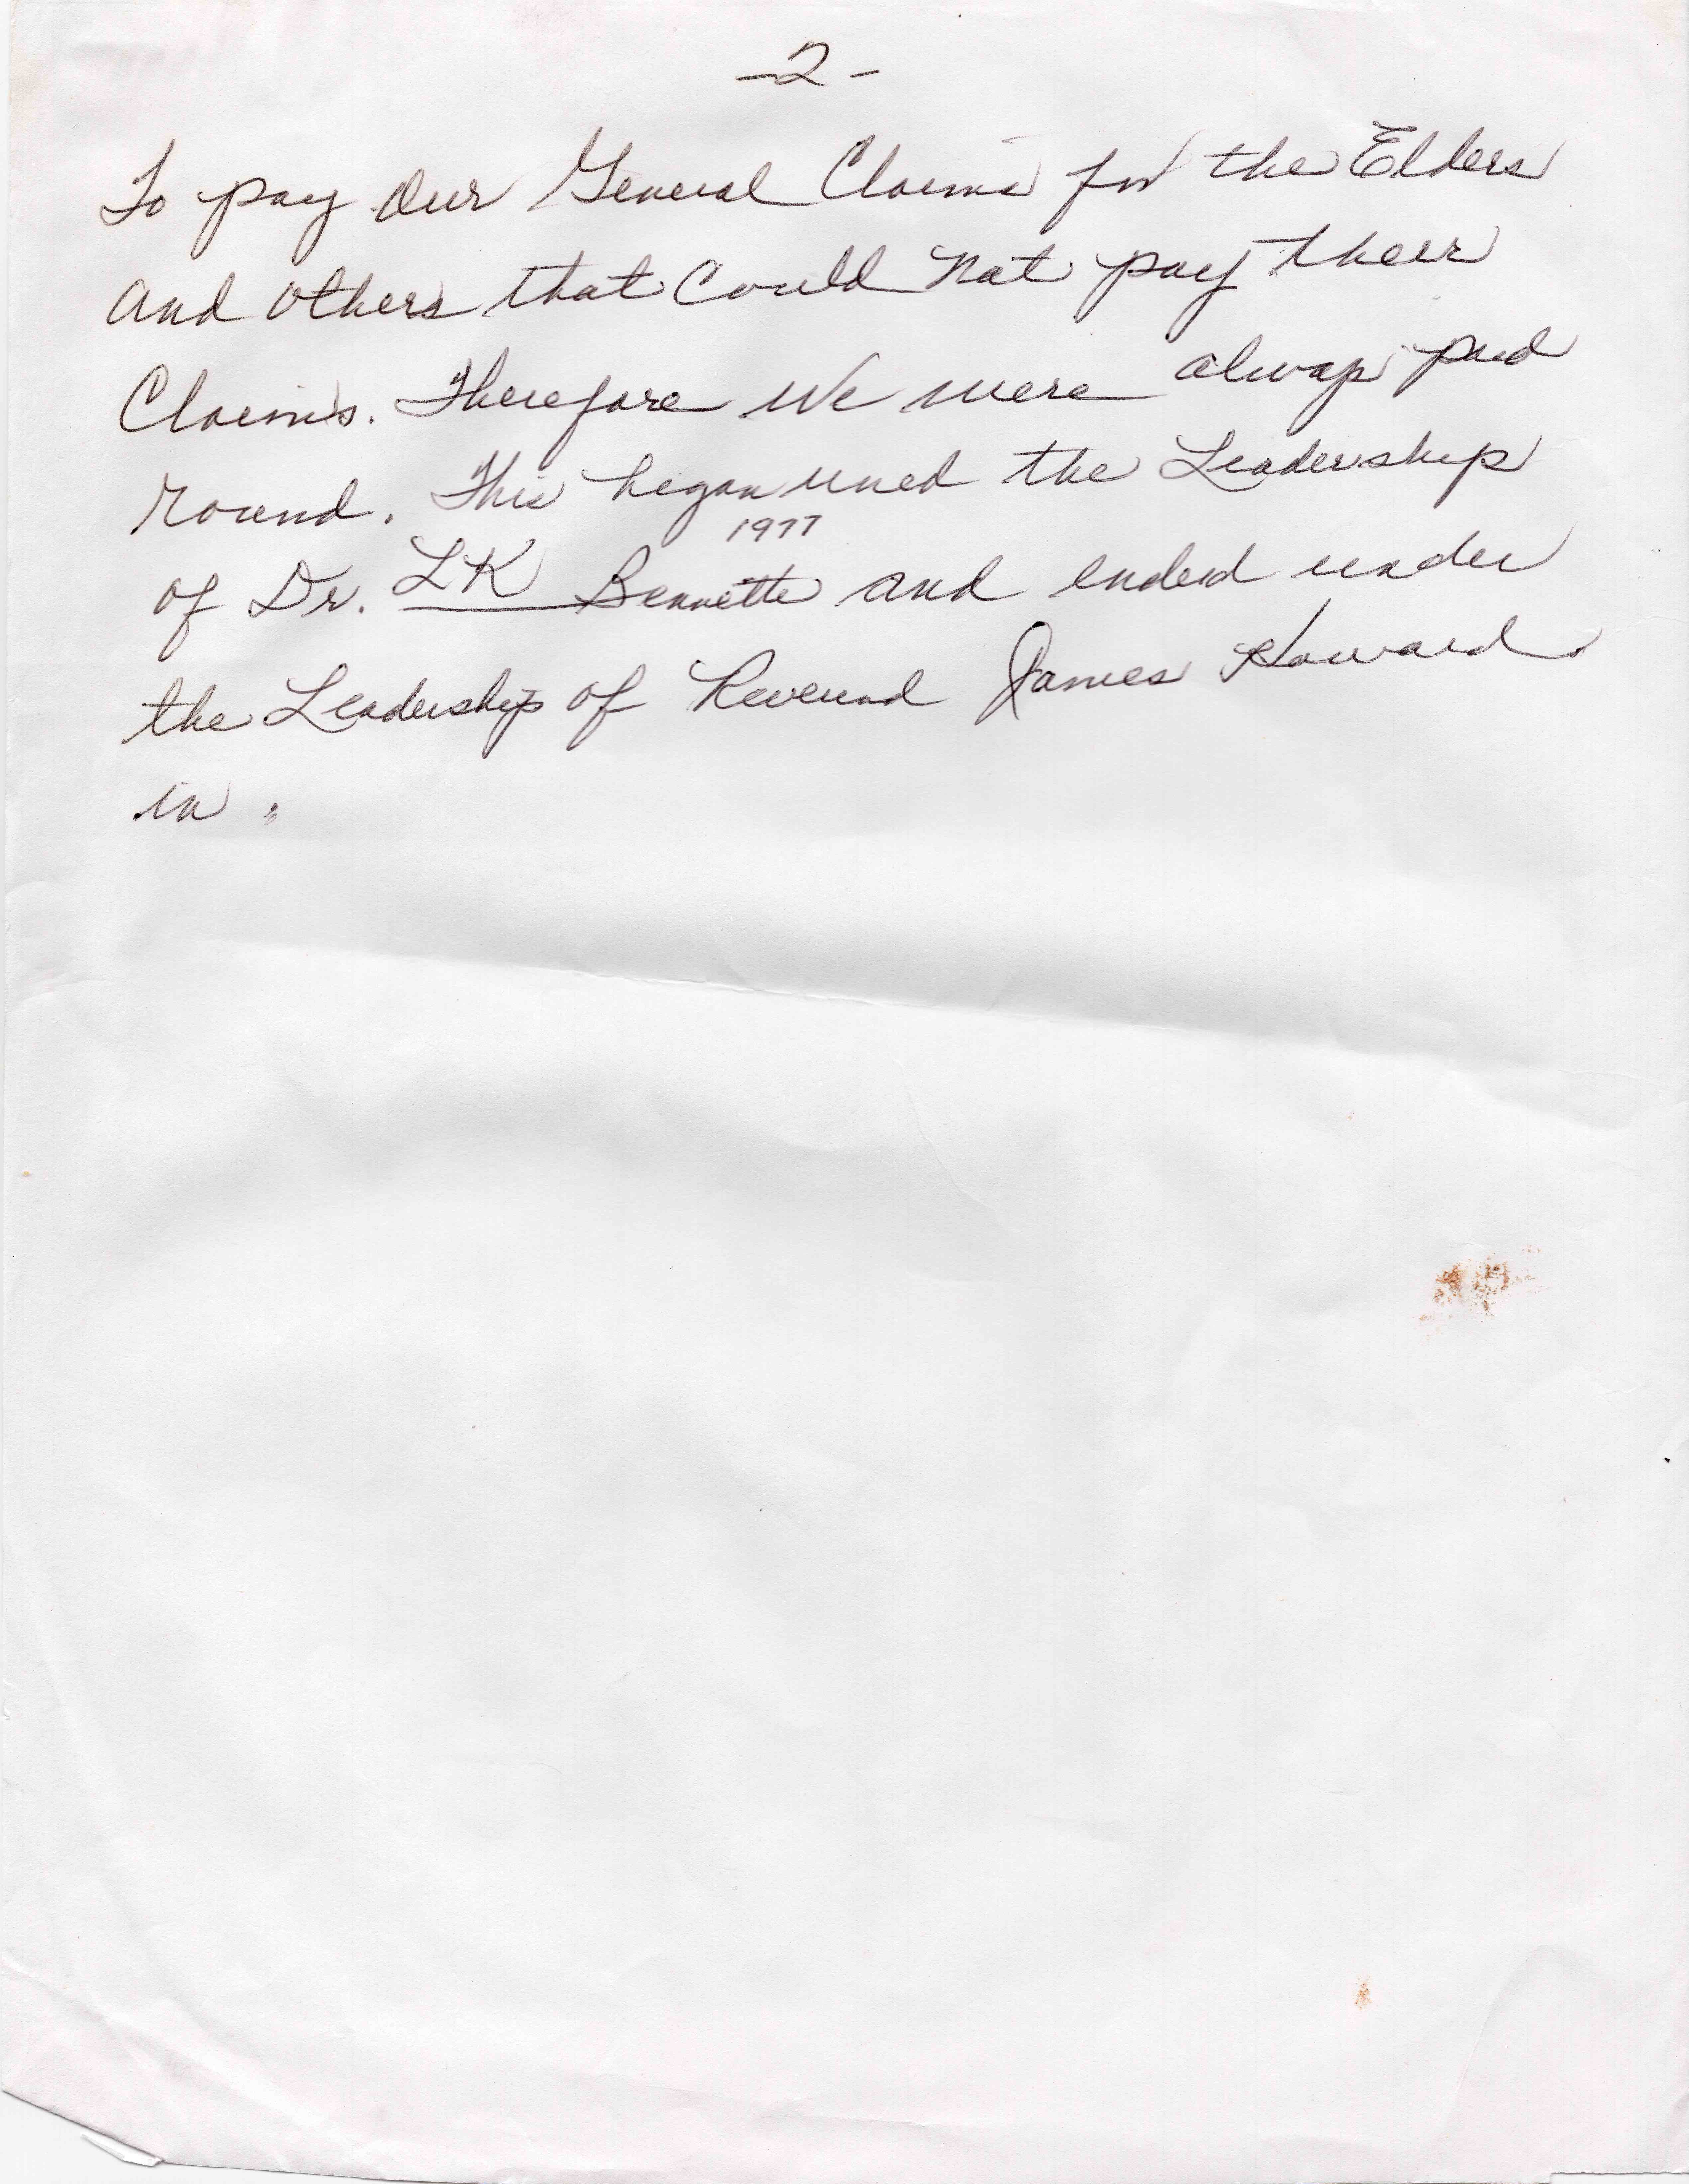 -2-
To pay Our General Claims for the Elders
and others that Could Not pay their
Claims. Therefore We were always paid
round. This began uned the Leadership
1977
of Dr. LK Bennette and ended under
the Leadership of Reverend James Howard.
in .